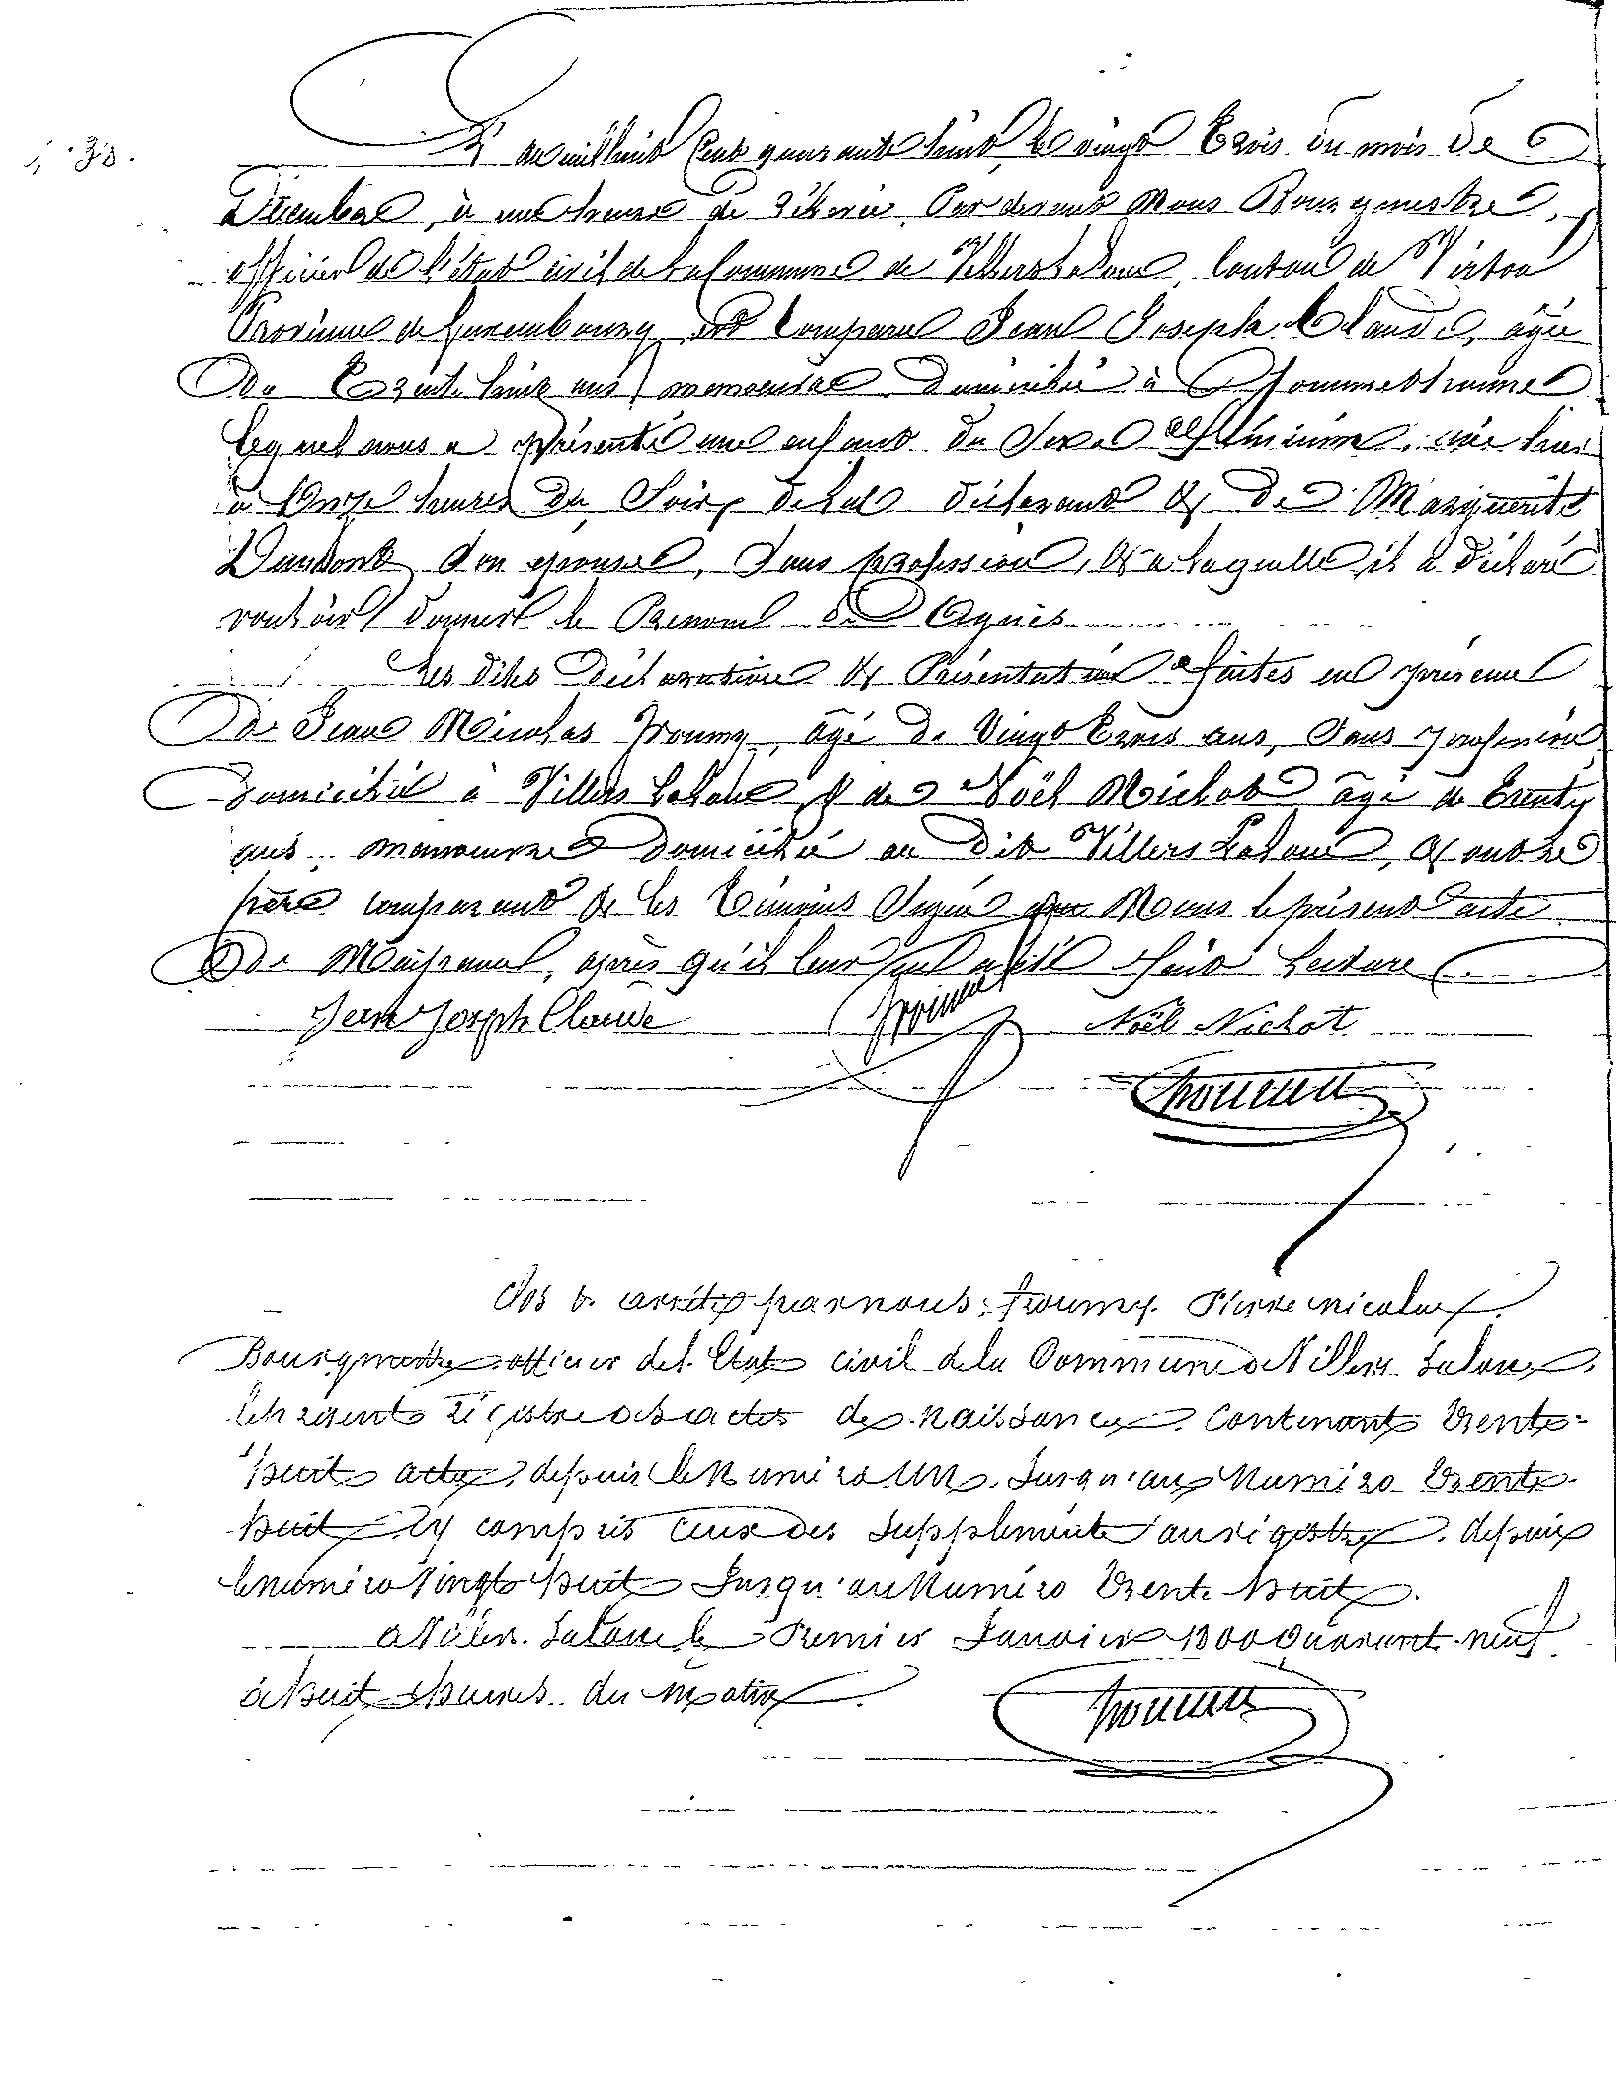 N° 38.
L'an mil huit Cent quarante huit le vingt trois du mois de
Décembre, à une heure de relevée Par devant Nous Bourgmestre,
officier de l'état civil de la Commune de Villers Laloue, Canton de Virton
Province de Luxembourg est Comparu Jean Joseph Claude, âgé
De Trente huit ans, manoeuvre Domicilié à
lequel nous a présenté une enfant du Sexe féminine, née hier
à Onze heures du Soir, de lui déclarant & De Marguerite
son épouse, Sans profession, & à laquelle il a déclaré
vouloir donner le Prénom de Agnès
Les dites Déclaration & Présentation faites en présence
De Jean Nicolas Froumy, âgé De Vingt trois ans, Sans profession
Domicilié à Villers Laloue & de Noël Nichot âgé de Trente
ans manoeuvre Domicilié au Dit Villers Laloue, & ont le
père comparant & les témoins Signé avec Nous le présent acte
De Naissance, après qu'il leur en a été fait Lecture
Jean Joseph Claude Noël Nichot
Clos & arrêté par nous, froumy Pierre nicolas,
Bourgmestre officier de l'Etat civil de la Commune de Villers Laloue,
le présent Régistre des actes de Naissances Contenant Trente-
huit actes, depuis le Numéro Un, Jusqu'au Numéro Trente
huit, y compris ceux des Suppléments au régistre, depuis
le numéro Vingt huit Jusqu'au Numéro Trente huit.
a Villers Laloue le Premier Janvier 1800 quarante neuf
à huit heures du matin.